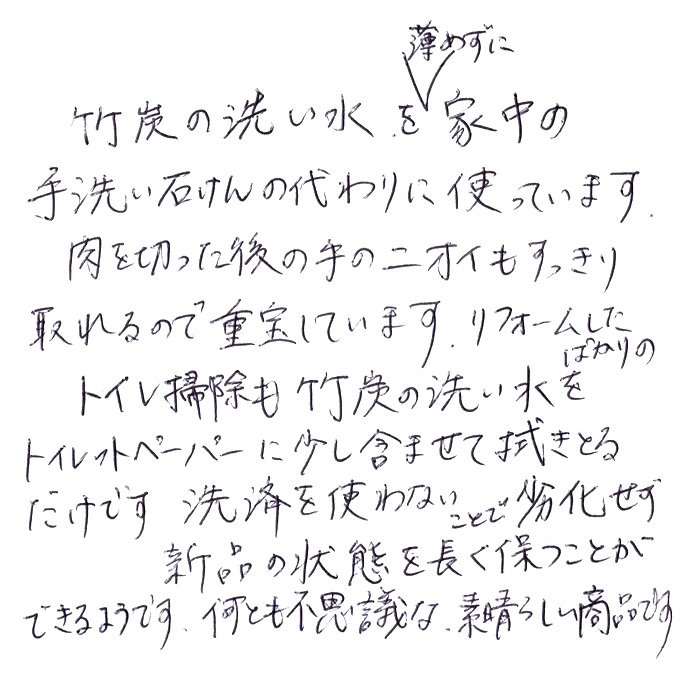 薄めずに
竹炭の洗い水を家中の
手洗い石けんの代わりに使っています.
肉を切った後の手のニオイもすっきり
取れるので重宝しています. リフォームした
ばかりの
トイレ掃除も竹炭の洗い水を
トイレットペーパーに少し含ませて拭きとる
だけです 洗済を使わないことで劣化せず
新品の状態を長く保つことが
できるようです. 何とも不思議な. 素晴らしい商品です